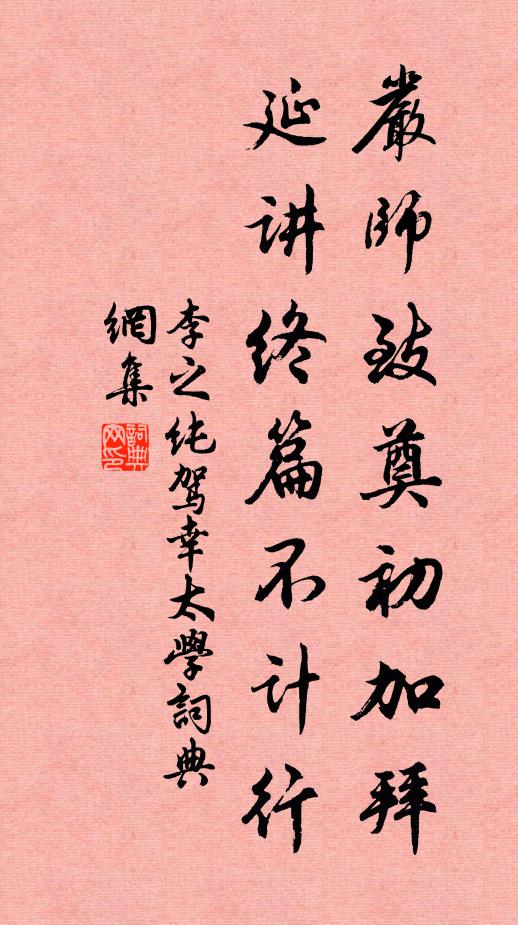 嚴師致奠初加拜
延讲終篇不计行
李之纯駕幸太學詞典
網集
詞典
网印